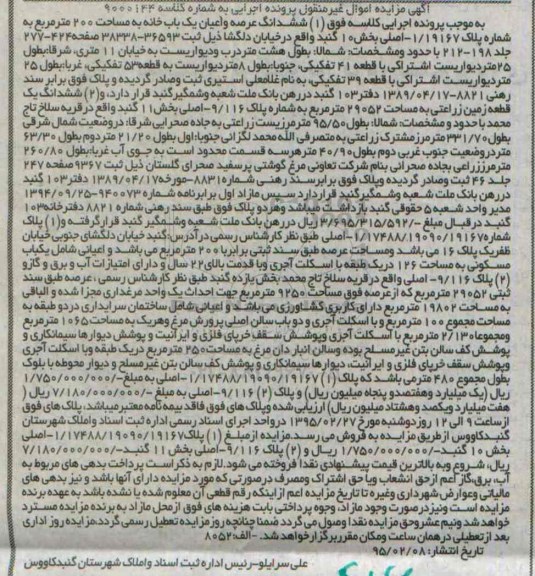 آگهی مزایده اموال غیرمنقول پرونده اجرایی به شماره کلاسه ۹۰۰۰۱۴۴
به موجب پرونده اجرایی کلاسه فوق (۱) ششدانگ عرصه واعیان یک باب خانه به مساحت ۲۰۰ مترمربع به
شماره پلاک ۱/۱۹۱۶۷-اصلی بخش۱۰ گنبد واقع درخیابان دلگشا ذیل ثبت ۳۶۵۹۳-۳۸۳۳۸ صفحه۴۲۴-۲۷۷
جلد ۱۹۸-۲۱۲ با حدود ومشخصات: شمالا: بطول هشت متردرب ودیواریست به خیابان ۱۱ متری، شرقا:بطول
۲۵متردیواریست اشتراکی با قطعه ۴۱ تفکیکی، جنوبا:بطول ۸متردیواریست به قطعه۵۳ تفکیکی، غربا:بطول ۲۵
متردیواریست اشتراکی با قطعه ۳۹ تفکیکی، به نام غلامعلی استیری ثبت وصادر گردیده و پلاک فوق برابر سند
رهنی ۸۸۲۱-۱۳۸۹/۰۴/۱۷ دفتر۱۰۳ گنبد دررهن بانک ملت شعبه وشمگیر گنبد قرار دارد، و(۲) ششدانگ یک
قطعه زمین زراعتی به مساحت ۲۹۰۵۲ مترمربع به شماره پلاک ۹/۱۱۶-اصلی بخش۱۱ گنبد واقع در قریه سلاخ تاج
محمد با حدود و مشخصات: شمالا: بطول ۹۵/۵۰ مترمرزیست زراعتی به جاده صحرایی شرقا: دروضعیت شمال شرقی
بطول ۳۳۱/۷۰ مترمرزمشترک زراعتی به متصرفی الله محمد لگزائی جنوبا:اول بطول ۲۱/۲۰ متردوم بطول ۶۳/۳۰
متردروضعیت جنوب غربی دوم بطول ۴۰/۹۰ مترهرسه قسمت محدود است به جوی آب غربا:بطول ۲۶۰/۸۰
مترمرززراعی بجاده صحرائی بنام شرکت تعاونی مرغ گوشتی پرسفید صحرای گلستان ذیل ثبت ۹۳۶۷ صفحه ۲۴۷
جلد ۴۶ ثبت وصادر گردیده وپلاک فوق برابرسند رهنی شماره۸۸۳۱-مورخه۱۳۸۹/۰۴/۱۷ دفتر۱۰۳ گنبد
دررهن بانک ملت شعبه وشمگیر گنبد قرار دارد سپس مازاد اول برابرنامه شماره ۹۴۰۰۷۳-۱۳۹۴/۰۹/۲۵
مدیر واحد شعبه۵ حقوقی گنبد بازداشت میباشد وهردو پلاک فوق طبق سند رهنی شماره ۸۸۲۱ دفترخانه۱۰۳
گنبد درقبال مبلغ -/۳/۶۹۵/۳۱۵/۵۹۲ ریال دررهن بانک ملت شعبه وشمگیر گنبد قرارگرفته و(۱) پلاک
شماره۱/۱۷۴۸۸/۱۹۰۹۰/۱۹۱۶۷-اصلی طبق نظر کارشناس رسمی در آدرس:گنبد خیابان دلگشای جنوبی خیابان
ظفر پلاک ۱۶ می باشد ومساحت عرصه طبق سند ثبتی برابربا ۲۰۰ مترمربع می باشد و اعیانی شامل یکباب
مسکونی به مساحت ۱۲۶ دریک طبقه با اسکلت آجری وبا قدمت بالای۲۲ سال و دارای امتیازات آب و برق و گازو
(۲) پلاک ۹/۱۱۶-اصلی واقع در قریه سلاخ تاج محمد بخش یازده گنبد طبق نظر کارشناس رسمی، عرصه طبق سند
ثبتی ۲۹۰۵۲ مترمربع که ازعرصه فوق مساحت ۹۲۵۰ مترمربع جهت احداث یک واحد مرغداری مجزا شده و الباقی
به مساحت ۱۹۸۰۲ مترمربع دارای کاربری کشاورزی می باشد و اعیانی شامل ساختمان سرایداری در دو طبقه به
مساحت مجموع ۱۰۰ مترمربع و با اسکلت آجری و دو باب سالن اصلی پرورش مرغ وهریک به مساحت ۱۰۶۵ مترمربع
ومجموعا۲/۱۳۰ مترمربع با اسکلت آجری وپوشش سقف خرپای فلزی و ایرانیت و پوشش دیوارها سیمانکاری و
پوشش کف سالن بتن غیرمسلح بوده وسالن انبار دان مرغ به مساحت۲۵۰ مترمربع دریک طبقه وبا اسکلت آجری
وپوشش سقف خرپای فلزی و ایرانیت، دیوارها سیمانکاری و پوشش کف سالن بتن غیرمسلح و دیوار محوطه با بلوک
بطول مجموع ۴۸۰ مترمی باشد که پلاک (۱) ۱/۱۷۴۸۸/۱۹۰۹۰/۱۹۱۶۷-اصلی به مبلغ -/۱/۷۵۰/۰۰۰/۰۰۰
ریال (یک میلیارد وهفتصد و پنجاه میلیون ریال) و پلاک (۲) ۹/۱۱۶-اصلی به مبلغ -/۷/۱۸۰/۰۰۰/۰۰۰ ریال (
هفت میلیارد ویکصد وهشتاد میلیون ریال) ارزیابی شده وپلاک های فوق فاقد بیمه نامه معتبر میباشد، پلاک های فوق
ازساعت ۹ الی ۱۲ روزدوشنبه مورخ ۱۳۹۵/۰۲/۲۷ درواحد اجرای اسناد رسمی اداره ثبت اسناد واملاک شهرستان
گنبدکاووس از طریق مزایده به فروش می رسد.مزایده ازمبلغ (۱) پلاک۱/۱۷۴۸۸/۱۹۰۹۰/۱۹۱۶۷-اصلی
بخش ۱۰ گنبد-/۱/۷۵۰/۰۰۰/۰۰۰ ریال و (۲) پلاک ۹/۱۱۶-اصلی بخش ۱۱ گنبد-/۷/۱۸۰/۰۰۰/۰۰۰
ریال شروع وبه بالاترین قیمت پیشنهادی نقدا فروخته می شود.لازم به ذکراست پرداخت بدهی های مربوط به
آب، برق،گاز اعم ازحق انشعاب ویا حق اشتراک ومصرف درصورتی که مورد مزایده دارای آنها باشد و نیز بدهی های
مالیاتی وعوارض شهرداری وغیره تا تاریخ مزایده اعم ازاینکه رقم قطعی آن معلوم شده یا نشده باشد به عهده برنده
مزایده است ونیزدرصورت وجود مازاد، وجوه پرداختی بابت هزینه های فوق از محل مازاد به برنده مزایده مسترد
خواهد شد ونیم عشروحق مزایده نقدا وصول می گردد ضمنا چنانچه روز مزایده تعطیل رسمی گردد،مزایده روز اداری
بعد از تعطیلی در همان ساعت ومکان مقرربرگزار خواهدشد. -الف:۸۰۵۲
تاریخ انتشار: ۹۵/۰۲/۰۸
علی سرایلو-رئیس اداره ثبت اسناد واملاک شهرستان گنبدکاووس